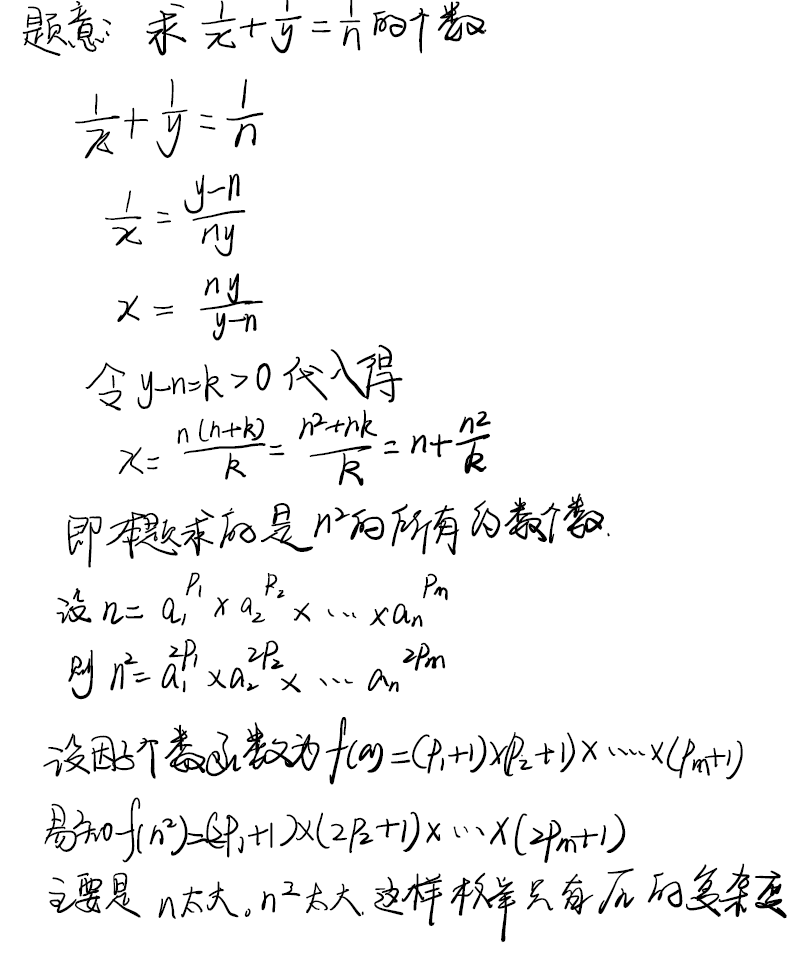 题意: 求 1/x + 1/y = 1/n 的个数
1/x + 1/y = 1/n
1/x = (y-n)/(ny)
x = ny/(y-n)
令 y-n=k>0 代入得
x = n(n+k)/k = (n²+nk)/k = n + n²/k
即本题求的是n²的所有约数个数.
设 n = a₁^P₁ × a₂^P₂ × ... × aₙ^Pm
则 n² = a₁^2P₁ × a₂^2P₂ × ... aₙ^2Pm
设因子个数函数为 f(n) = (P₁+1)×(P₂+1)×.....×(Pm+1)
易知 f(n²) = (2P₁+1)×(2P₂+1)×...×(2Pm+1)
主要是 n太大。n²太大. 这样枚举只有 √n 的复杂度